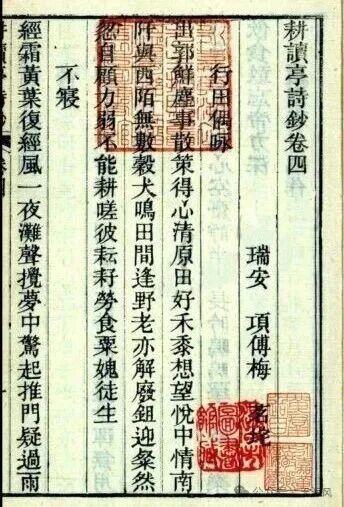 耕讀亭詩鈔卷四
瑞安 項傅梅 茗垞
行田偶咏
出郭鮮塵事散策得心清原田好禾黍想望悅中情南
阡與西陌無數穀犬鳴田間逢野老亦解廢鉏迎粲然
忽自顧力弱不能耕嗟彼耘耔勞食粟媿徒生
不寢
經霜黃葉復經風一夜灘聲攪夢中驚起推門疑過雨